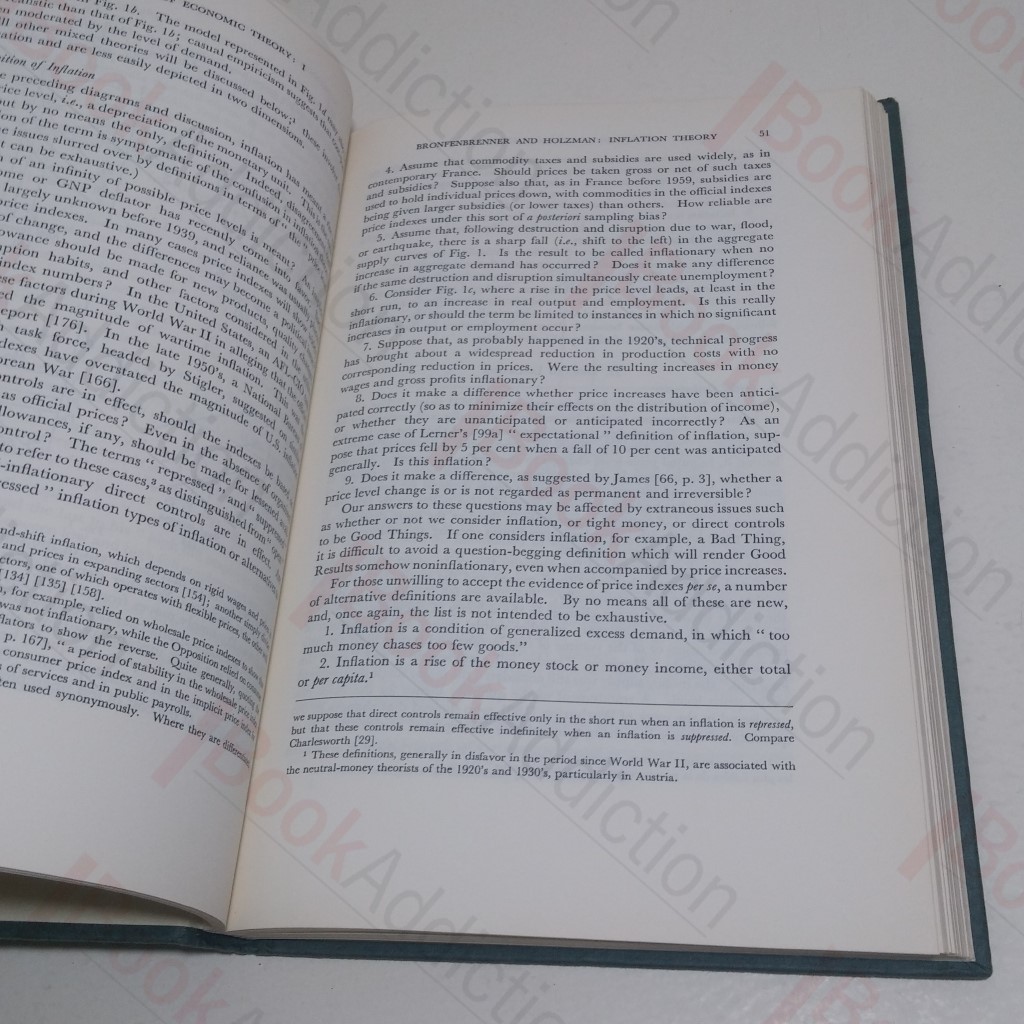 OF ECONOMIC THEORY: I
in Fig. 1b. The model represented in Fig. 1d
realistic than that of Fig. 1b; casual empiricism suggests that
been moderated by the level of demand.
other mixed theories will be discussed below;¹ these
and are less easily depicted in two dimensions.
of Inflation
preceding diagrams and discussion, inflation has
level, i.e., a depreciation of the monetary unit. This
but by no means the only, definition. Indeed,
of the term is symptomatic of the confusion in
issues slurred over by definitions in terms of "the"
can be exhaustive.)
of an infinity of possible price levels is meant?
or GNP deflator has recently come into
largely unknown before 1939, and reliance was
price indexes. In many cases price indexes will
of change, and the differences may become a political
should be made for new products, quality
habits, and other factors considered in the
index numbers? In the United States,
factors during World War II in alleging that the
the magnitude of wartime inflation. This
[176]. In the late 1950's, a National
task force, headed by Stigler, suggested
have overstated the magnitude of U.S.
War [166].
are in effect, should the indexes be
as official prices? Even in the absence of
if any, should be made for lessened
control? The terms "repressed" and "suppressed
to refer to these cases,³ as distinguished from
direct controls are in effect.
" inflation types of inflation or
inflation, which depends on rigid wages and
and prices in expanding sectors [154]; another simply
one of which operates with flexible prices, the other
[134] [135] [158].
for example, relied on wholesale price indexes to show
was not inflationary, while the Opposition relied on
to show the reverse. Quite generally,
p. 167], "a period of stability in the wholesale price
consumer price index and in the implicit price
of services and in public payrolls.
used synonymously. Where they are
BRONFENBRENNER AND HOLZMAN: INFLATION THEORY 51
4. Assume that commodity taxes and subsidies are used widely, as in
contemporary France. Should prices be taken gross or net of such taxes
and subsidies? Suppose also that, as in France before 1959, subsidies are
used to hold individual prices down, with commodities in the official indexes
being given larger subsidies (or lower taxes) than others. How reliable are
price indexes under this sort of a posteriori sampling bias?
5. Assume that, following destruction and disruption due to war, flood,
or earthquake, there is a sharp fall (i.e., shift to the left) in the aggregate
supply curves of Fig. 1. Is the result to be called inflationary when no
increase in aggregate demand has occurred? Does it make any difference
if the same destruction and disruption simultaneously create unemployment?
6. Consider Fig. 1c, where a rise in the price level leads, at least in the
short run, to an increase in real output and employment. Is this really
inflationary, or should the term be limited to instances in which no significant
increases in output or employment occur?
7. Suppose that, as probably happened in the 1920's, technical progress
has brought about a widespread reduction in production costs with no
corresponding reduction in prices. Were the resulting increases in money
wages and gross profits inflationary?
8. Does it make a difference whether price increases have been antici-
pated correctly (so as to minimize their effects on the distribution of income),
or whether they are unanticipated or anticipated incorrectly? As an
extreme case of Lerner's [99a] "expectational" definition of inflation, sup-
pose that prices fell by 5 per cent when a fall of 10 per cent was anticipated
generally. Is this inflation?
9. Does it make a difference, as suggested by James [66, p. 3], whether a
price level change is or is not regarded as permanent and irreversible?
Our answers to these questions may be affected by extraneous issues such
as whether or not we consider inflation, or tight money, or direct controls
to be Good Things. If one considers inflation, for example, a Bad Thing,
it is difficult to avoid a question-begging definition which will render Good
Results somehow noninflationary, even when accompanied by price increases.
For those unwilling to accept the evidence of price indexes per se, a number
of alternative definitions are available. By no means all of these are new,
and, once again, the list is not intended to be exhaustive.
1. Inflation is a condition of generalized excess demand, in which "too
much money chases too few goods."
2. Inflation is a rise of the money stock or money income, either total
or per capita.¹
we suppose that direct controls remain effective only in the short run when an inflation is repressed,
but that these controls remain effective indefinitely when an inflation is suppressed. Compare
Charlesworth [29].
¹ These definitions, generally in disfavor in the period since World War II, are associated with
the neutral-money theorists of the 1920's and 1930's, particularly in Austria.
BookAddiction